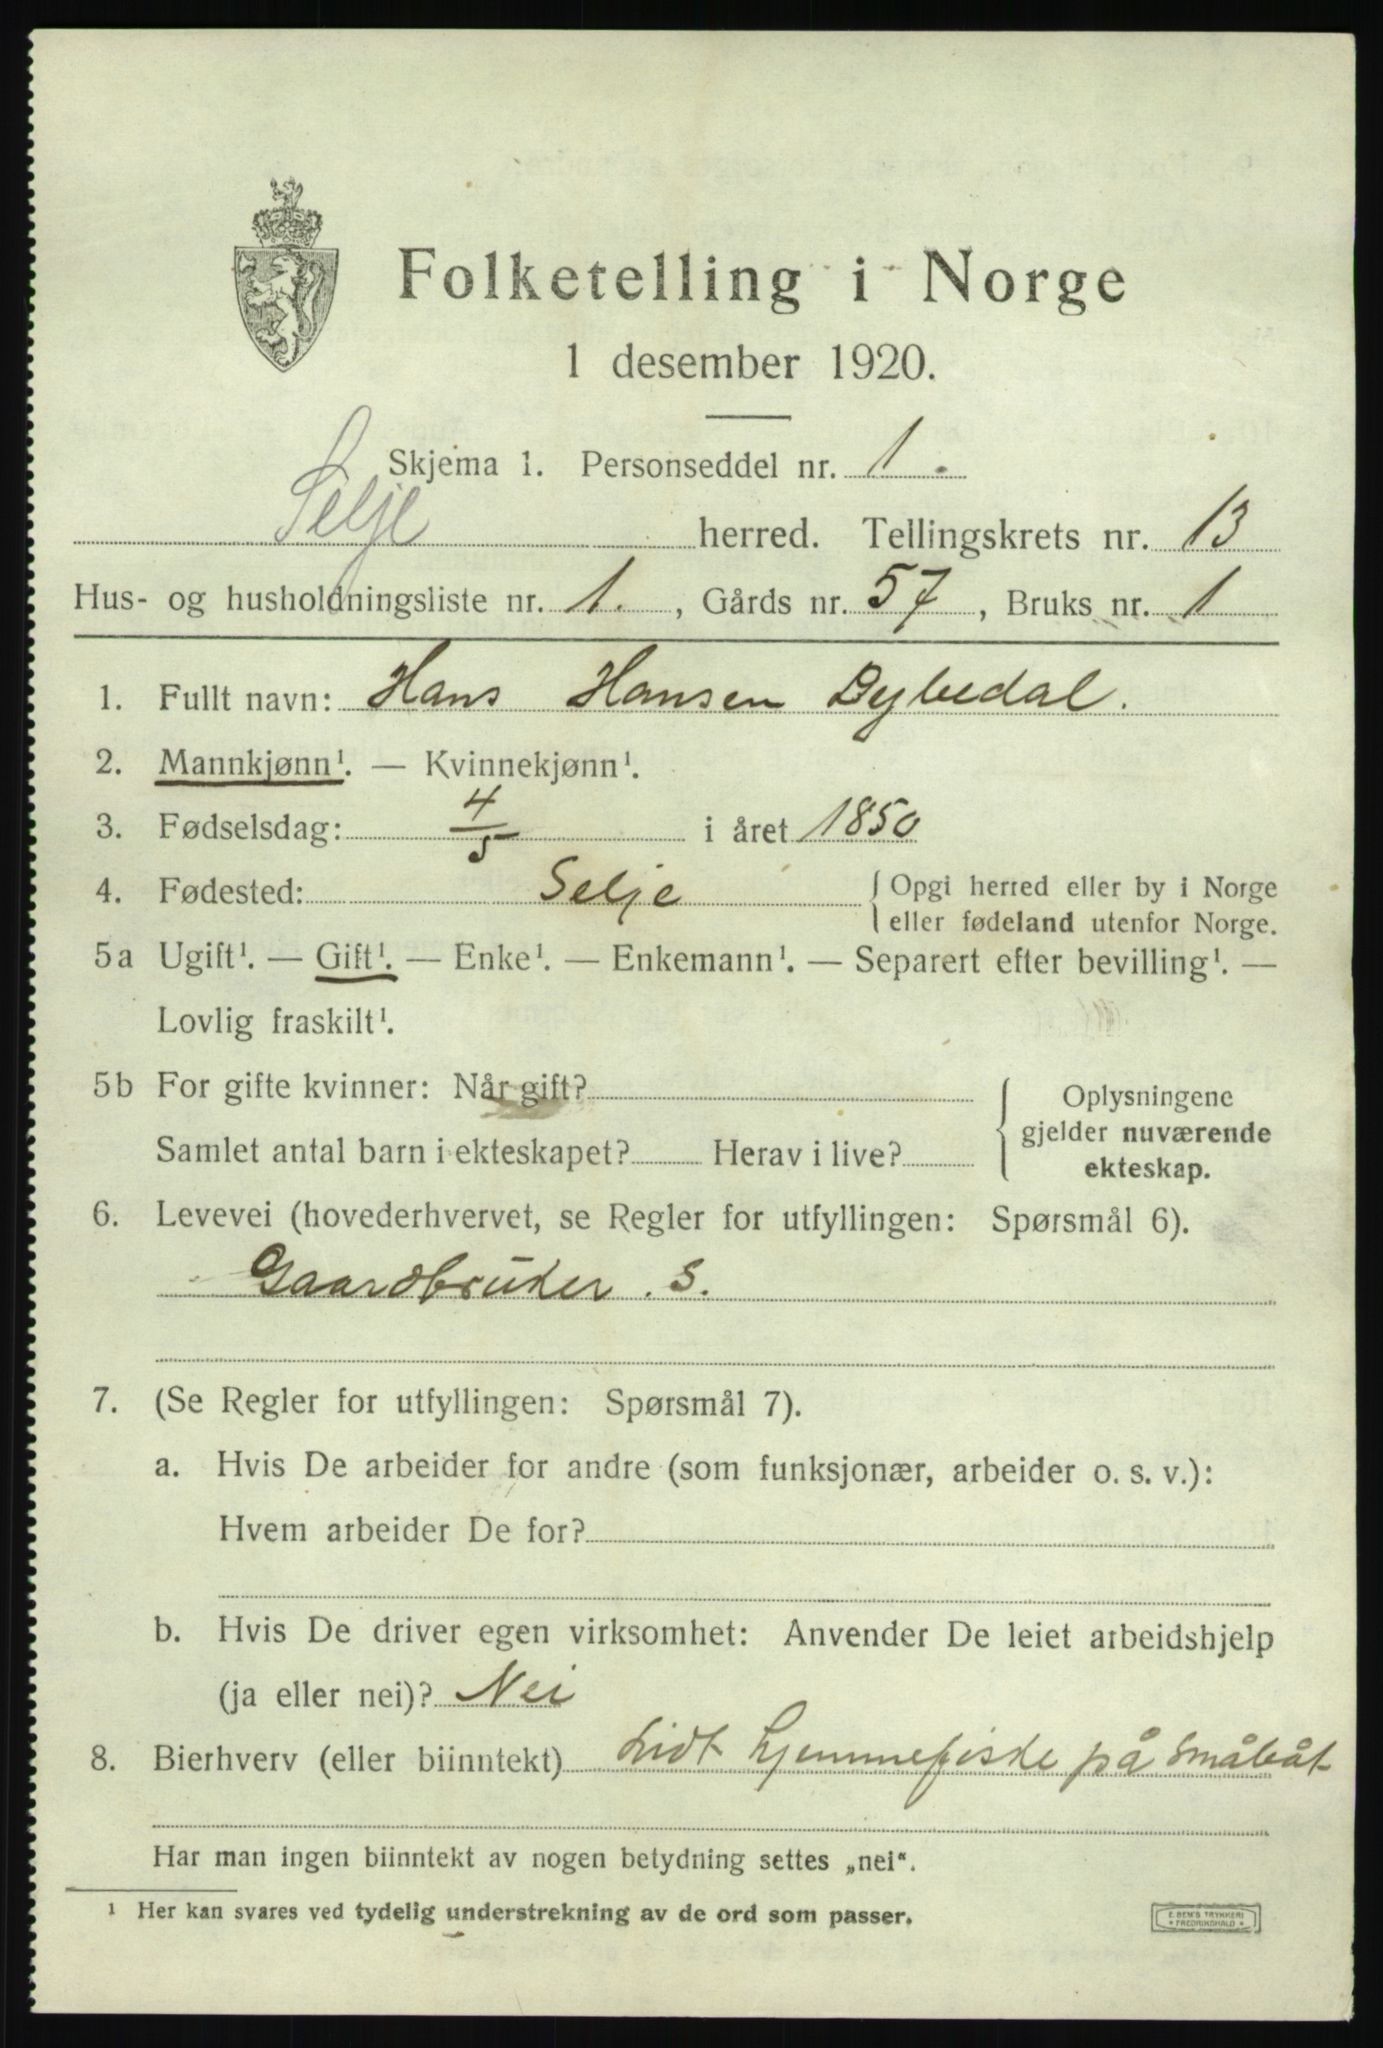 Folketelling i Norge
1 desember 1920.
Skjema 1. Personseddel nr. 1.
Selje herred. Tellingskrets nr. 13
Hus- og husholdningsliste nr. 1. , Gårds nr. 57 , Bruks nr. 1
1. Fullt navn: Hans Hansen Dybedal.
2. Mannkjønn¹. — Kvinnekjønn¹.
3. Fødselsdag: 4/5 i året 1850
4. Fødested: Selje { Opgi herred eller by i Norge
eller fødeland utenfor Norge.
5a Ugift¹. — Gift¹. — Enke¹. — Enkemann¹. — Separert efter bevilling¹. —
Lovlig fraskilt¹.
5b For gifte kvinner: Når gift?
Samlet antal barn i ekteskapet? Herav i live?
{ Oplysningene
gjelder nuværende
ekteskap.
6. Levevei (hovederhvervet, se Regler for utfyllingen: Spørsmål 6).
Gaardbruker. S.
7. (Se Regler for utfyllingen: Spørsmål 7).
a. Hvis De arbeider for andre (som funksjonær, arbeider o. s. v.):
Hvem arbeider De for?
b. Hvis De driver egen virksomhet: Anvender De leiet arbeidshjelp
(ja eller nei)? Nei
8. Bierhverv (eller biinntekt) Lidt hjemmefiske på småbåt
Har man ingen biinntekt av nogen betydning settes „nei“.
¹ Her kan svares ved tydelig understrekning av de ord som passer.
E. SEM'S TRYKKERI
FREDRIKSHALD